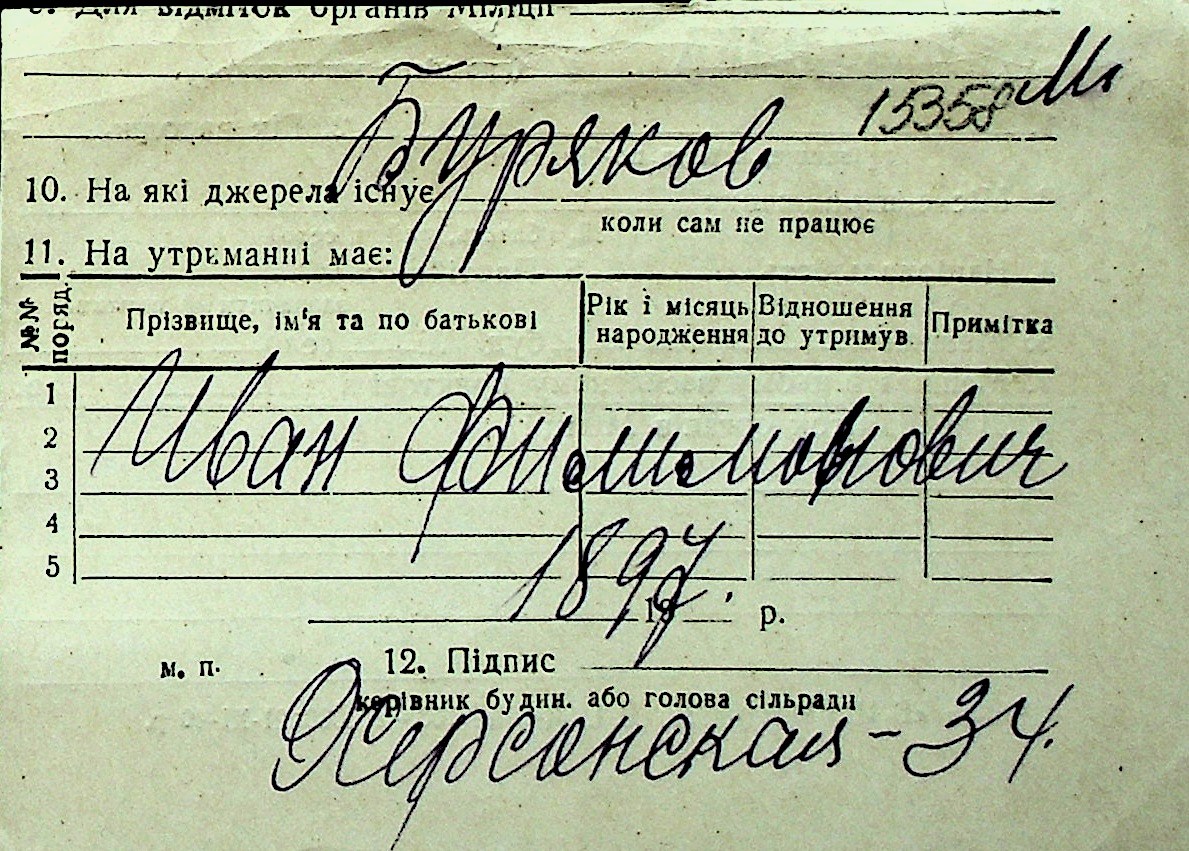 Для відміток органів Міліції
15358
Буряков
10. На які джерела існує
коли сам не працює
11. На утриманні має:
№№ поряд.
Прізвище, ім'я та по батькові
Рік і місяць народження
Відношення до утримув.
Примітка
1
2
3
4
5
Иван Филимонович
1897
19 р.
м. п.
12. Підпис
керівник будин. або голова сільради
Херсонская - 34.